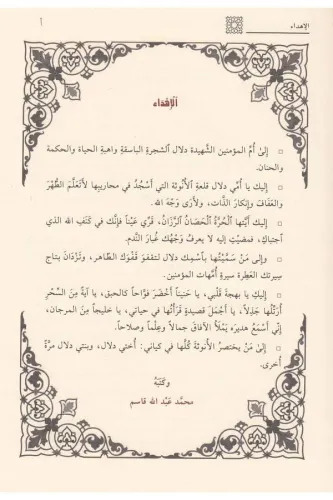 الإهداء
أ
الإهداء
□ إلىٰ أُمِّ المؤمنين الشَّهيدة دلال الشجرة الباسقة واهبة الحياة والحكمة
والحنان.
□ إليك يا أُمِّي دلال قلعة الأُنوثة التي أسْجُدُ في محاريبها لأتعلَّمَ الطُّهْرَ
والعَفافَ وإنكارَ الذَّات، ولأرَى وَجْهَ الله.
□ إليك أيَّتها الحُرَّةُ الْحَصَانُ الرَّزَانُ، قَرِّي عَيْناً فإنَّك في كَنَفِ الله الذي
اجتباكِ، فمضَيْتِ إليه لا يعرفُ وَجْهُك غُبارَ النَّدم.
□ وإلى مَنْ سَمَّيْتُها بِاسْمِك دلال لتقفوَ قَفْوَك الطاهر، وتَزْدَانَ بتاج
سِيرتك العَطِرة سيرةِ أُمَّهات المؤمنين.
□ إليكِ يا بهجةَ قَلْبي، يا حَنيناً أخضرَ فوَّاحاً كالحبق، يا آيةً مِنَ السِّحْرِ
أُرَتِّلُها جَذِلاً، يا أجْمَلَ قصيدةٍ قرَأتُها في حياتي، يا خليجاً مِنَ المرجان،
إنِّي أسْمَعُ هديرَه يَمْلَأُ الآفاقَ جمالاً وعِلْماً وصلاحاً.
□ إلىٰ مَنْ يختصرُ الأُنوثةَ كُلَّها في كياني: أُختي دلال، وبنتي دلال مرَّةً
أُخرى.
وكتبَهُ
محمَّد عَبْد الله قاسم